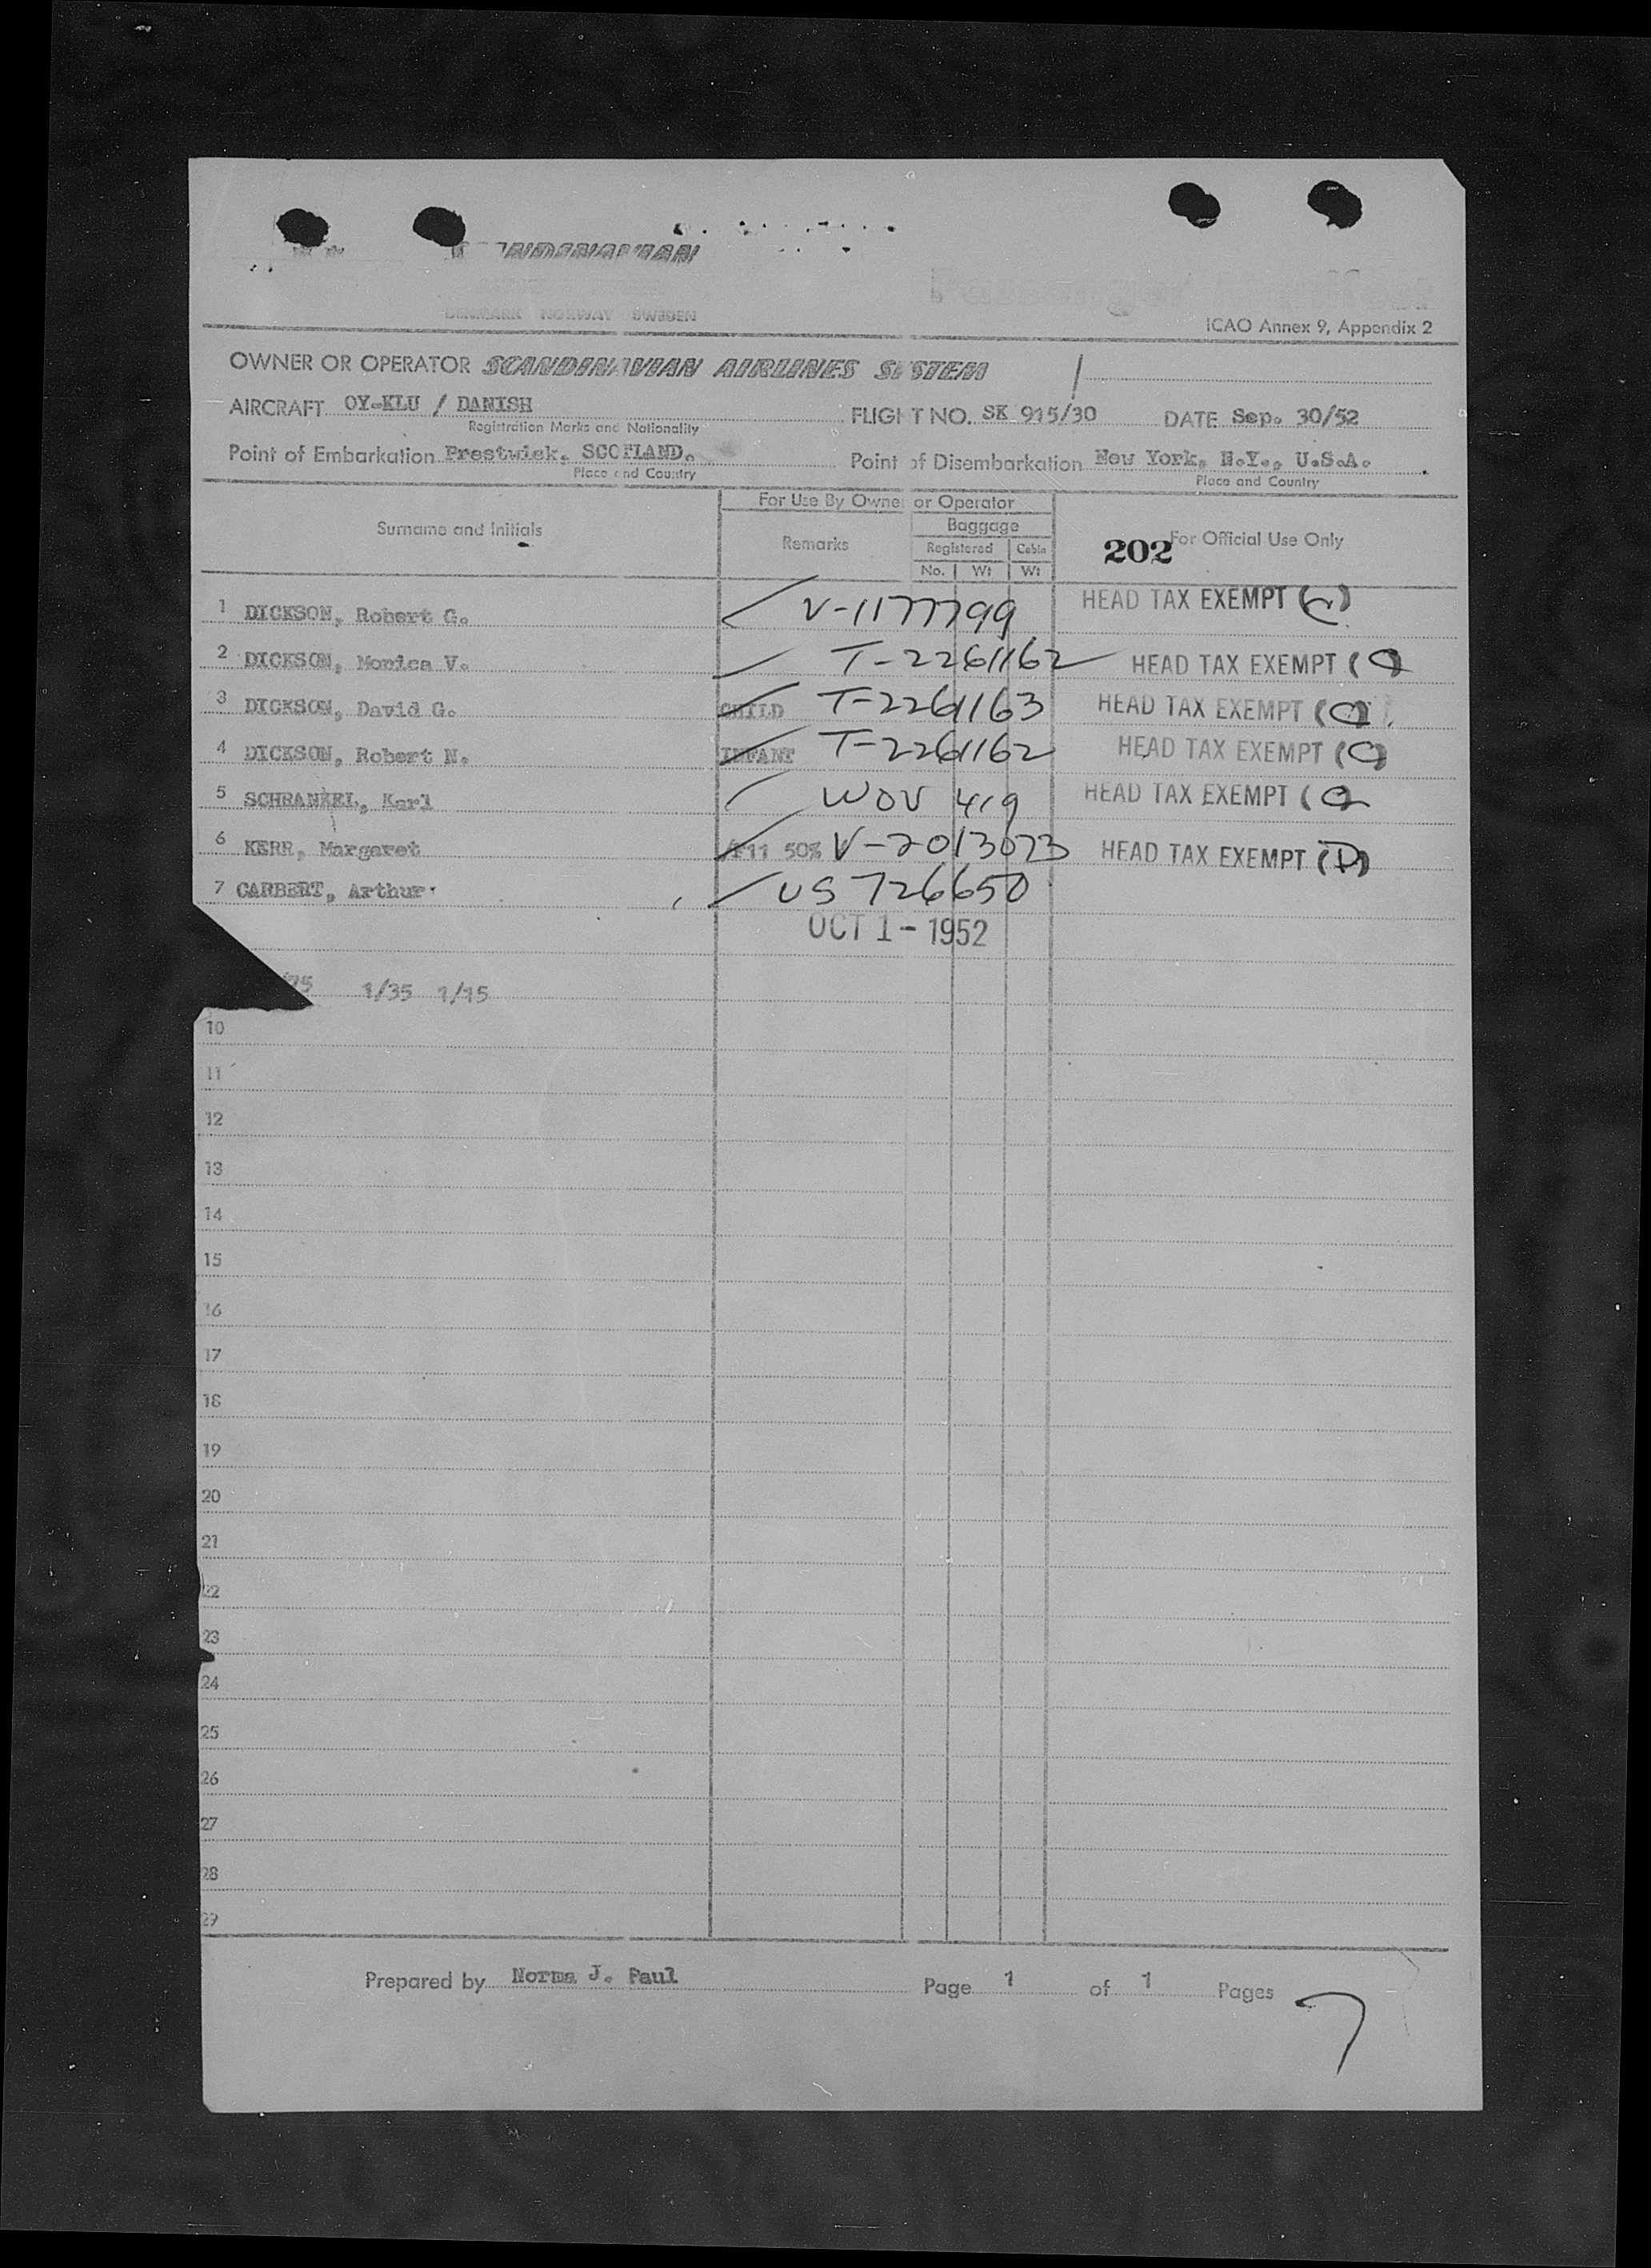 SCANDINAVIAN
DENMARK NORWAY SWEDEN
ICAO Annex 9, Appendix 2
OWNER OR OPERATOR SCANDINAVIAN AIRLINES SYSTEM
AIRCRAFT OY-KLU / DANISH FLIGHT NO. SK 915/30 DATE Sep. 30/52
Registration Marks and Nationality
Point of Embarkation Prestwick, SCOTLAND. Point of Disembarkation New York, N.Y., U.S.A.
Place and Country Place and Country
For Use By Owner or Operator
Surname and Initials Remarks Baggage 202 For Official Use Only
Registered Cabin
No. Wt Wt
1 DICKSON, Robert G. V-1177799 HEAD TAX EXEMPT
2 DICKSON, Monica V. T-2261162 HEAD TAX EXEMPT
3 DICKSON, David G. CHILD T-2261163 HEAD TAX EXEMPT
4 DICKSON, Robert N. INFANT T-2261162 HEAD TAX EXEMPT
5 SCHRANKEL, Karl WOV 419 HEAD TAX EXEMPT
6 KERR, Margaret 50% V-2013073 HEAD TAX EXEMPT (D)
7 CARBERT, Arthur US 726650
OCT 1 - 1952
/75 1/35 1/15
10
11
12
13
14
15
16
17
18
19
20
21
22
23
24
25
26
27
28
29
Prepared by Norma J. Paul Page 1 of 1 Pages
7